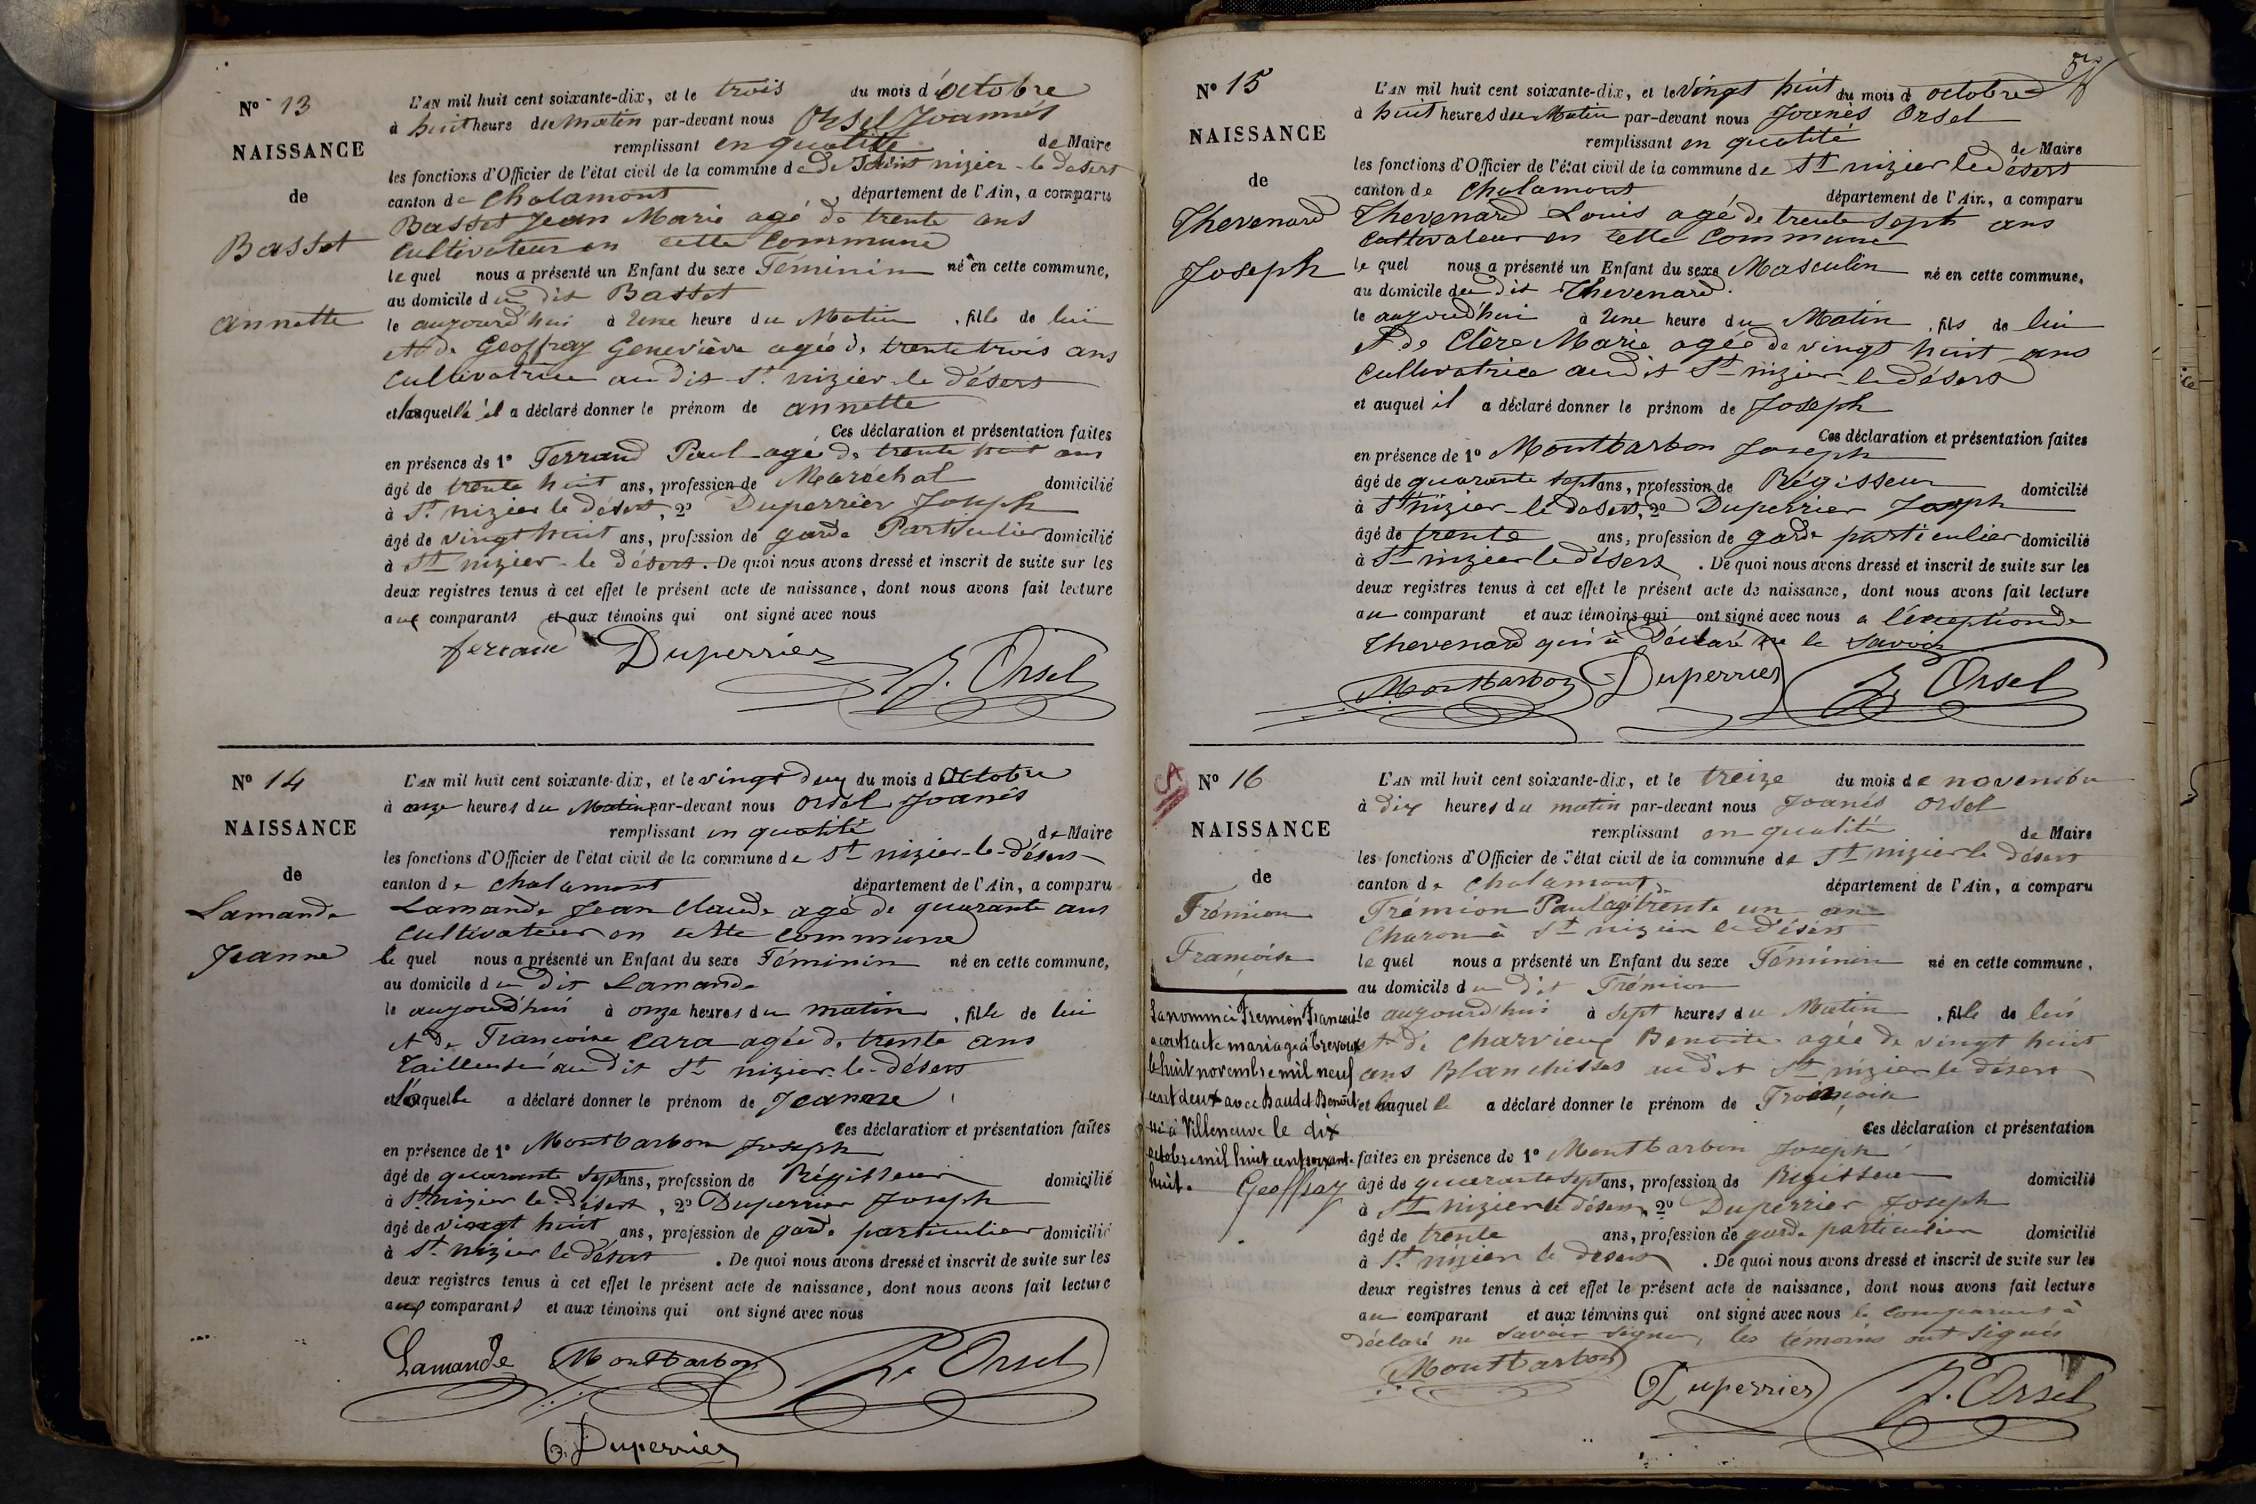 N° 13
NAISSANCE
de
Basset
annette
L'AN mil huit cent soixante-dix, et le trois du mois d'octobre
à huit heures du Matin par-devant nous Orsel Joannès
remplissant en qualité de Maire
les fonctions d'Officier de l'état civil de la commune de de Saint nizier-le Désert
canton de Chalamont département de l'Ain, a comparu
Basset Jean Marie agé de trente ans
Cultivateur en cette Commune
lequel nous a présenté un Enfant du sexe Féminin né en cette commune,
au domicile du dit Basset
le aujourd'hui à Une heure du Matin, fille de lui
et de Geoffray Geneviève agée de trente trois ans
Cultivatrice au dit St nizier-le Désert
et laquelle il a déclaré donner le prénom de annette
Ces déclaration et présentation faites
en présence de 1° Ferrand Paul agé de trente huit ans
âgé de trente huit ans, profession de Maréchal domicilié
à St nizier le désert, 2° Duperrier Joseph
âgé de vingt huit ans, profession de garde Particulier domicilié
à St nizier-le Désert. De quoi nous avons dressé et inscrit de suite sur les
deux registres tenus à cet effet le présent acte de naissance, dont nous avons fait lecture
aux comparants et aux témoins qui ont signé avec nous
ferrand Duperrier
J. Orsel
N° 14
NAISSANCE
de
Lamande
Jeanne
L'AN mil huit cent soixante-dix, et le vingt deux du mois d'Octobre
à onze heures du Matin par-devant nous Orsel Joanès
remplissant en qualité de Maire
les fonctions d'Officier de l'état civil de la commune de St nizier-le-Désert
canton de Chalamont département de l'Ain, a comparu
Lamande Jean Claude agé de quarante ans
Cultivateur en cette Commune
le quel nous a présenté un Enfant du sexe Féminin né en cette commune,
au domicile du dit Lamande
le aujourd'hui à onze heures du matin, fille de lui
et de Françoise Cara agée de trente ans
Tailleuse au dit St nizier-le-Désert
et laquelle a déclaré donner le prénom de Jeanne
Ces déclaration et présentation faites
en présence de 1° Montbarbon Joseph
âgé de quarante sept ans, profession de Régisseur domicilié
à St nizier le Désert, 2° Duperrier Joseph
âgé de vingt huit ans, profession de garde particulier domicilié
à St nizier le Désert. De quoi nous avons dressé et inscrit de suite sur les
deux registres tenus à cet effet le présent acte de naissance, dont nous avons fait lecture
aux comparants et aux témoins qui ont signé avec nous
Lamande Montbarbon J. Orsel
Duperrier
N° 15
NAISSANCE
de
Thevenard
Joseph
L'AN mil huit cent soixante-dix, et le vingt huit du mois d'octobre
à huit heures du Matin par-devant nous Joanès Orsel
remplissant en qualité de Maire
les fonctions d'Officier de l'état civil de la commune de St nizier le désert
canton de Chalamont département de l'Ain, a comparu
Thevenard Louis agé de trente sept ans
Cultivateur en cette Commune
le quel nous a présenté un Enfant du sexe Masculin né en cette commune,
au domicile du dit Thevenard.
le aujourd'hui à Une heure du Matin, fils de lui
et de Clère Marie agée de vingt huit ans
Cultivatrice au dit St nizier-le Désert
et auquel il a déclaré donner le prénom de Joseph
Ces déclaration et présentation faites
en présence de 1° Montbarbon Joseph
âgé de quarante sept ans, profession de Régisseur domicilié
à St nizier-le désert, 2° Duperrier Joseph
âgé de trente ans, profession de garde particulier domicilié
à St nizier le désert. De quoi nous avons dressé et inscrit de suite sur les
deux registres tenus à cet effet le présent acte de naissance, dont nous avons fait lecture
au comparant et aux témoins qui ont signé avec nous a l'exception de
Thevenard qui a Déclaré ne le savoir
Montbarbon Duperrier J. Orsel
CA
N° 16
NAISSANCE
de
Frémion
Françoise
La nommée Fremion Françoise
a contracté mariage à Trevoux
le huit novembre mil neuf
cent deux avec Baudet Benoit
né à Villeneuve le dix
octobre mil huit cent soixante-
huit.
Geoffray
L'AN mil huit cent soixante-dix, et le treize du mois de novembre
à dix heures du matin par-devant nous Joanès Orsel
remplissant en qualité de Maire
les fonctions d'Officier de l'état civil de la commune de St nizier le désert
canton de Chalamont département de l'Ain, a comparu
Frémion Paul agé de trente un an
Charon à St nizier le Désert
le quel nous a présenté un Enfant du sexe Féminin né en cette commune,
au domicile du dit Frémion
le aujourd'hui à sept heures du Matin, fille de lui
et de Charvieux Benoite agée de vingt huit
ans Blanchisses au dit St nizier le désert
et laquelle a déclaré donner le prénom de Françoise
Ces déclaration et présentation
faites en présence de 1° Montbarbon Joseph
âgé de quarante sept ans, profession de Régisseur domicilié
à St nizier le désert, 2° Duperrier Joseph
âgé de trente ans, profession de garde particulier domicilié
à St nizier le désert. De quoi nous avons dressé et inscrit de suite sur les
deux registres tenus à cet effet le présent acte de naissance, dont nous avons fait lecture
au comparant et aux témoins qui ont signé avec nous le comparant à
déclaré ne savoir signer, les témoins ont signés
Montbarbon
Duperrier J. Orsel